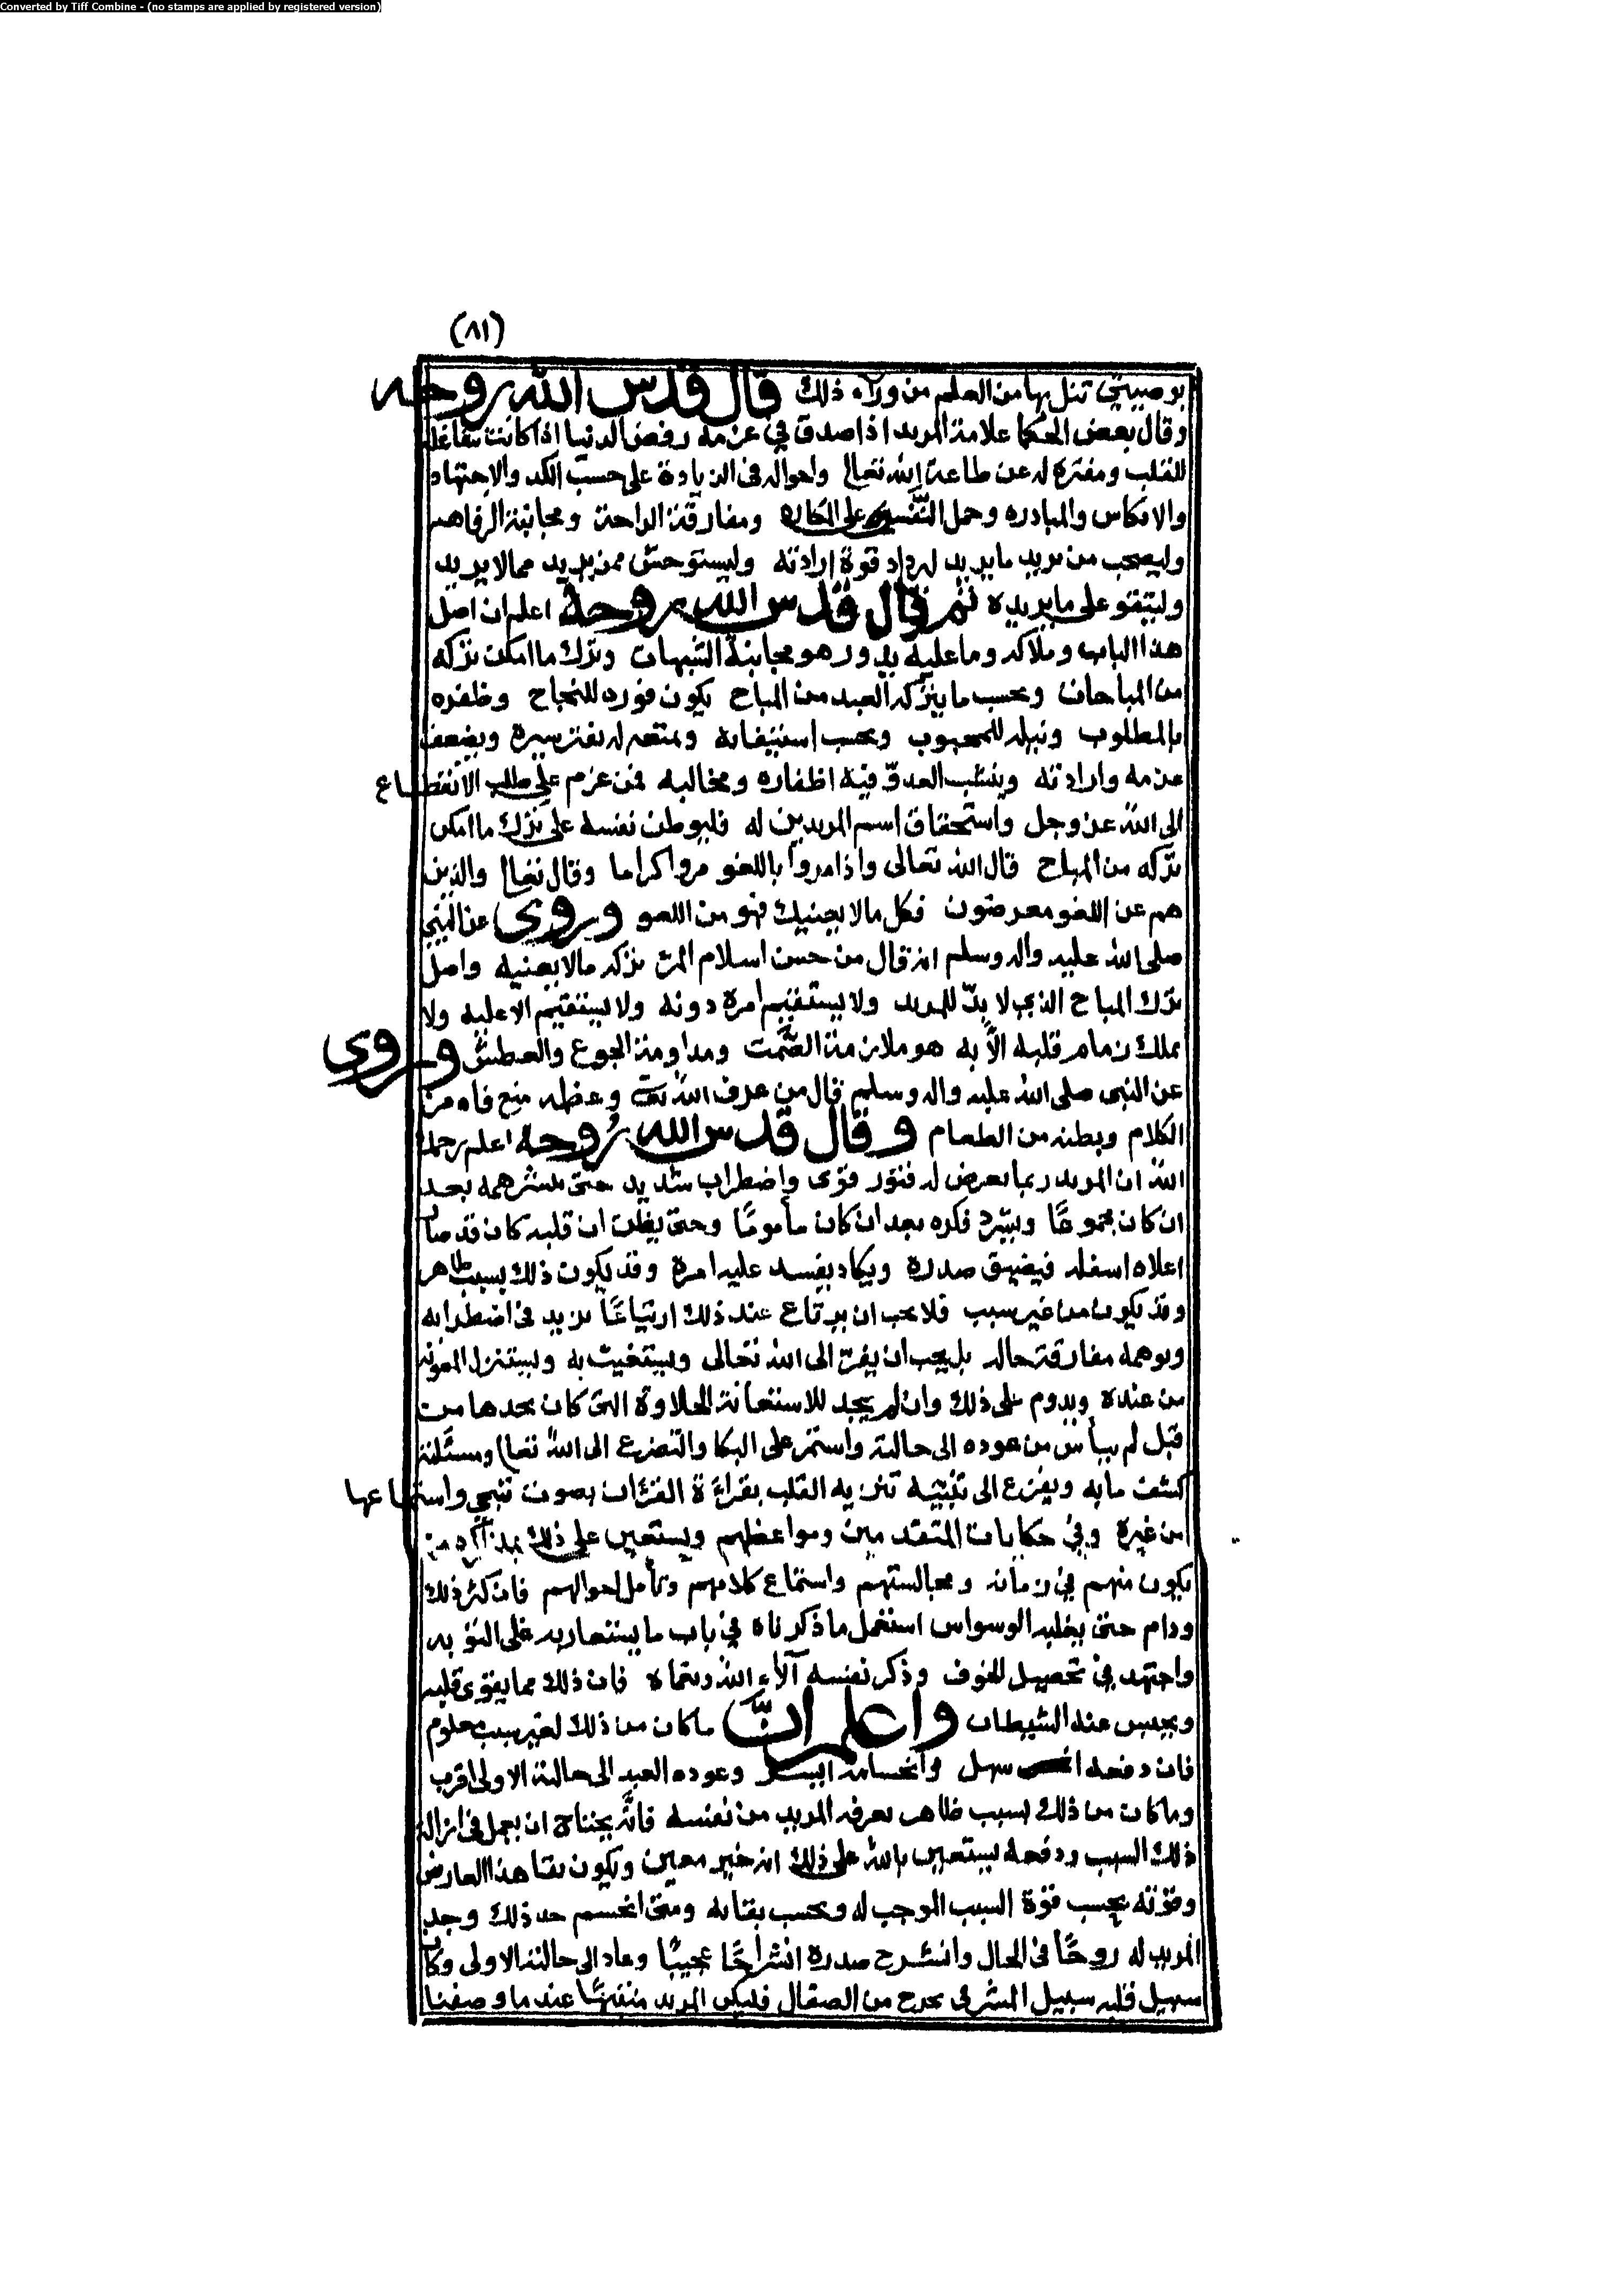 Converted by Tiff Combine - (no stamps are applied by registered version)
(٨١)
بوصيتي تنل بها من العلم من ورآء ذلك قال قدس الله روحه
وقال بعض الحكما علامة المريد اذا صدق في عزمه رفض الدنيا اذا كانت شاغلة
للقلب ومفتره له عن طاعة الله تعالى واحواله في الزيادة على حسب الكد والاجتهاد
والانكاس والمبادره وحمل النفس على المكاره ومفارقة الراحة ومجانبة الرفاهيه
وليصحب من يريد ما يريد ليزداد قوة ارادته وليستوحش ممن يريد مما لا يريد
وليتقو على ما يريده ثم قال قدس الله روحه اعلم ان اصل
هذا الباب وملاكه وما عليه يدور هو مجانبة الشبهات وترك ما امكن تركه
من المباحات وبحسب ما يتركه العبد من المباح يكون فوزه للنجاح وظفره
بالمطلوب ونيله للمحبوب وبحسب استيفائه وتمتعه له يفتر سيره ويضعف
عزمه وارادته وينشب العدوّ فيه اظفاره ومخالبه فمن عزم على طلب الانقطاع
الى الله عز وجل واستحقاق اسم المريدين له فليوطن نفسه على ترك ما امكن
تركه من المباح قال الله تعالى واذا مروا باللغو مروا كراما وقال تعالى والذين
هم عن اللغو معرضون فكل ما لا يعنيك فهو من اللغو وروي عن النبي
صلى الله عليه واله وسلم انه قال من حسن اسلام المرء تركه ما لا يعنيه واصل
ترك المباح الذي لا بدّ للمريد ولا يستقيم امره دونه ولا يستقيم الا عليه ولا
يملك زمام قلبه الاّ به هو ملازمة الصّمت ومداومة الجوع والعطش وروى
عن النبى صلى الله عليه واله وسلم قال من عرف الله وعظمه منع فاه من
الكلام وبطنه من الطعام وقال قدس الله رُوحه اعلم رحمك
الله ان المريد ربما يعرض له فتور قوى واضطراب شديد حتى ينتشر همه بعد
ان كان مجموعًا ويتبرد فكره بعد ان كان مأمومًا وحتى يظن ان قلبه كان قد صار
اعلاه اسفله فيضيق صدره ويكاد يفسد عليه امره وقد يكون ذلك بسبب ظاهر
وقد يكون من غير سبب فلا يجب ان يرتاع عند ذلك ارتياعًا يزيد في اضطرابه
ويوهمه مفارقة حاله بل يجب ان يفزع الى الله تعالى ويستغيث به ويستنزل المعونه
من عنده ويدوم على ذلك وان لم يجد للاستعانة الحلاوة التى كان يجدها من
قبل لم ييأس من عوده الى حالته واستمر على البكا والتضرع الى الله تعالى ومسئلته
كشف ما به ويفزع الى القلب بقراءة القرءان بصوت شجي واستماعها
من غيره وفي حكايات المتقدمين ومواعظهم ويستعين على ذلك بمذاكره من
يكون منهم في زمانه ومجالستهم واستماع كلامهم وتأمل احوالهم فان كثر ذلك
ودام حتى يغلبه الوسواس استعمل ما ذكرناه في باب ما يستعان به على التوبه
واجتهد في تحصيل الخوف وذكر نفسه آلآء الله ونعماه فان ذلك مما يقوى قلبه
عنه الشيطان واعلم انّ ما كان من ذلك لغير سبب معلوم
فان دفعه سهل وانحسامه وعوده العبد الى حالته الاولى اقرب
وما كان من ذلك بسبب ظاهر يعرفه المريد من نفسه فانّه يحتاج ان يعمل في ازالة
ذلك السبب ودفعه يستعين بالله على ذلك انه خير معين ويكون بقا هذا العارض
وقوّته بحسب قوّة السبب الموجب له وبحسب بقائه ومتى انحسم ذلك وجد
المريد له روحًا في الحال وانشرح صدره انشراحًا عجيبًا وعاد الى حالته الاولى وكان
سبيل قلبه سبيل المشرفى يخرج من الصقال فليكن المريد منتبهًا عند ما وصفنا